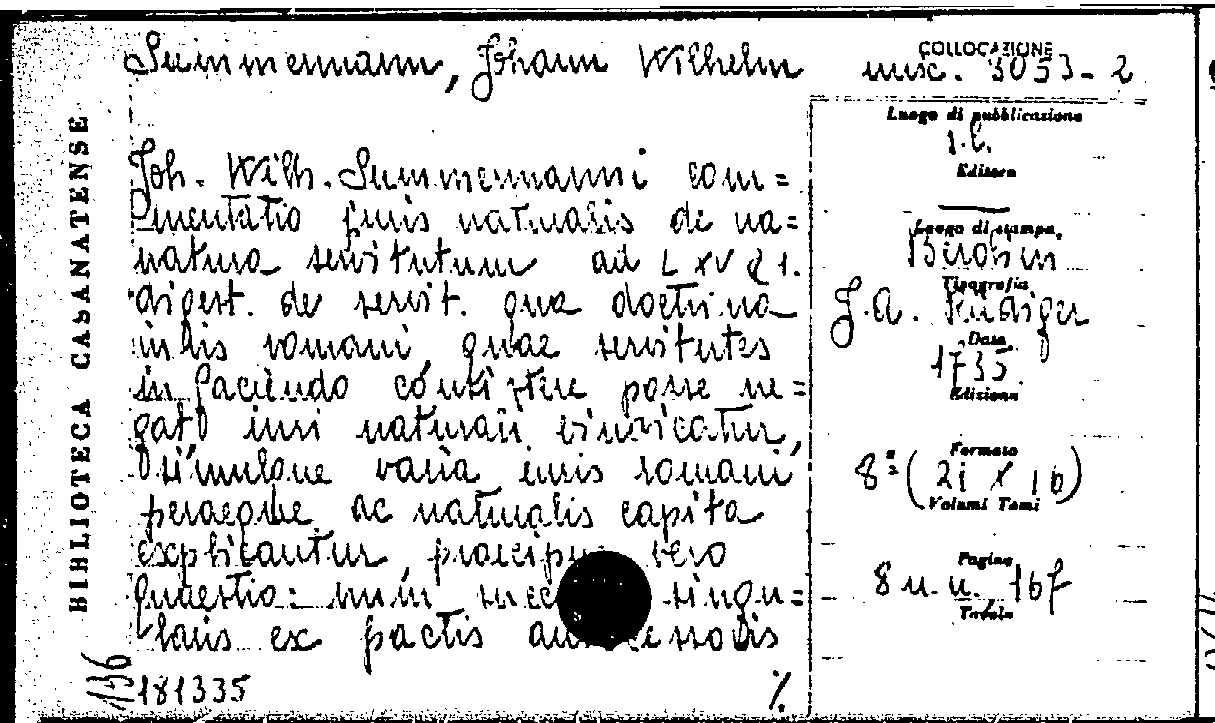 Summermann, Johann Wilhelm
COLLOCAZIONE
misc. 3053-2
BIBLIOTECA CASANATENSE
Joh. Wilh. Summermanni com=
mentatio juris naturalis de na=
natura servitutum ad L XV § 1.
digest. de servit. qua doctrina
iuris romani, quae servitutes
in faciendo consistere posse ne=
gat iuri naturali vindicatur,
simulque varia iuris romani
peraeque ac naturalis capita
explicantur, praecipue vero
quaestio: num singu=
laris ex pactis
136
181335
%
Luogo di pubblicazione
s.l.
Editore
Luogo di stampa
Berolin
Tipografia
J.A. Rüdiger
Data
1735
Edizione
Formato
8° (21 x 16)
Volumi Tomi
Pagine
8 n.n. 167
Tavole